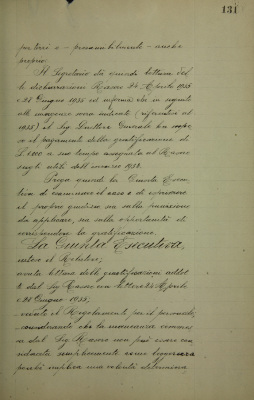 131
portarsi e - presumibilmente - anche
proprio.
Il Segretario dà quindi lettura del
le dichiarazioni Russo 24 Aprile 1955
e 28 Giugno 1955 ed informa che in seguito
alle mancanze sopra indicate (riferentesi al
1955) il Sig. Direttore Generale ha sospe
so il pagamento della gratificazione di
a suo tempo assegnata al Russo
sugli utili dell'esercizio 1954.
Prega quindi la Giunta Esecu
tiva di esaminare il caso e di esprimere
il proprio giudizio sia sulla punizione
da applicare, sia sulla opportunità di
corrispondere la gratificazione.
La Giunta Esecutiva,
udito il Relatore;
vista lettera delle giustificazioni addot
te dal Sig. Russo con lettere 24 Aprile
e 28 Giugno 1955;
visto il Regolamento per il personale,
considerando che la mancanza commes
sa dal Sig. Russo non può essere con
siderata semplicemente come leggerezza
perché implica una volontà determina